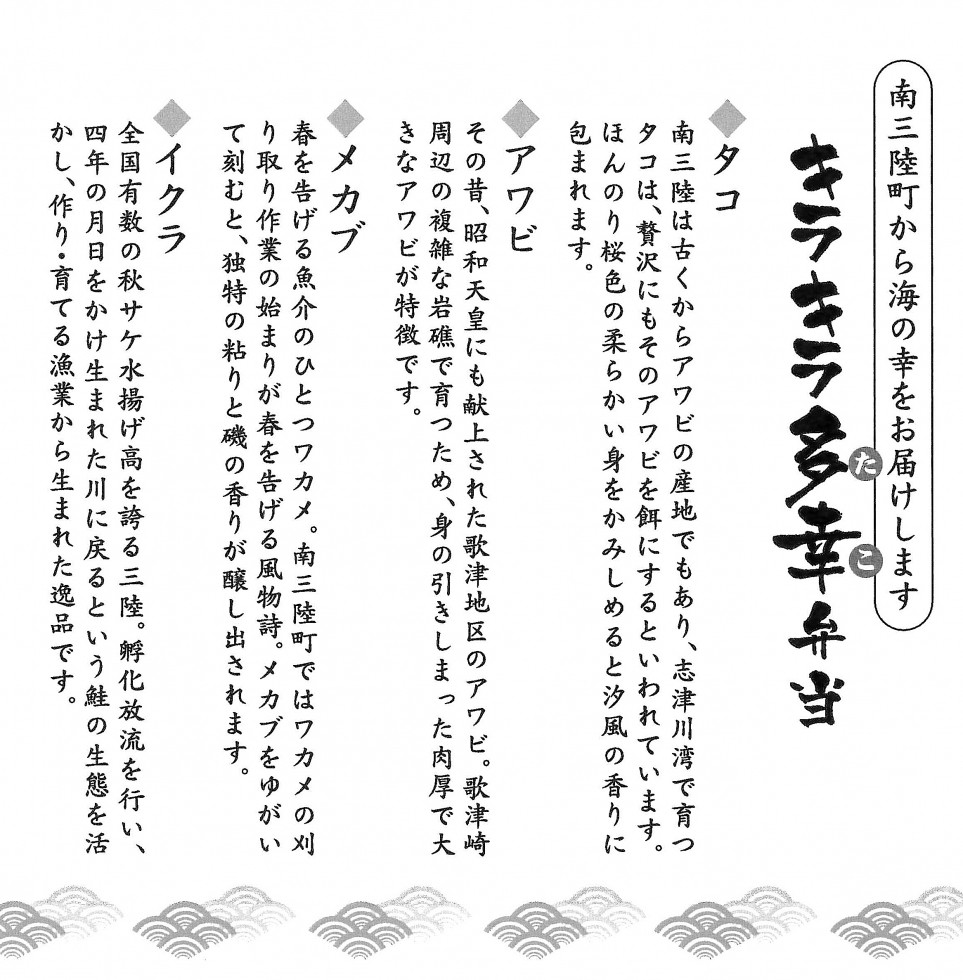 南三陸町から海の幸をお届けします
キラキラ多幸弁当
たこ
タコ
南三陸は古くからアワビの産地でもあり、志津川湾で育つ
タコは、贅沢にもそのアワビを餌にするといわれています。
ほんのり桜色の柔らかい身をかみしめると汐風の香りに
包まれます。
アワビ
その昔、昭和天皇にも献上された歌津地区のアワビ。歌津崎
周辺の複雑な岩礁で育つため、身の引きしまった肉厚で大
きなアワビが特徴です。
メカブ
春を告げる魚介のひとつワカメ。南三陸町ではワカメの刈
り取り作業の始まりが春を告げる風物詩。メカブをゆがい
て刻むと、独特の粘りと磯の香りが醸し出されます。
イクラ
全国有数の秋サケ水揚げ高を誇る三陸。孵化放流を行い、
四年の月日をかけ生まれた川に戻るという鮭の生態を活
かし、作り・育てる漁業から生まれた逸品です。